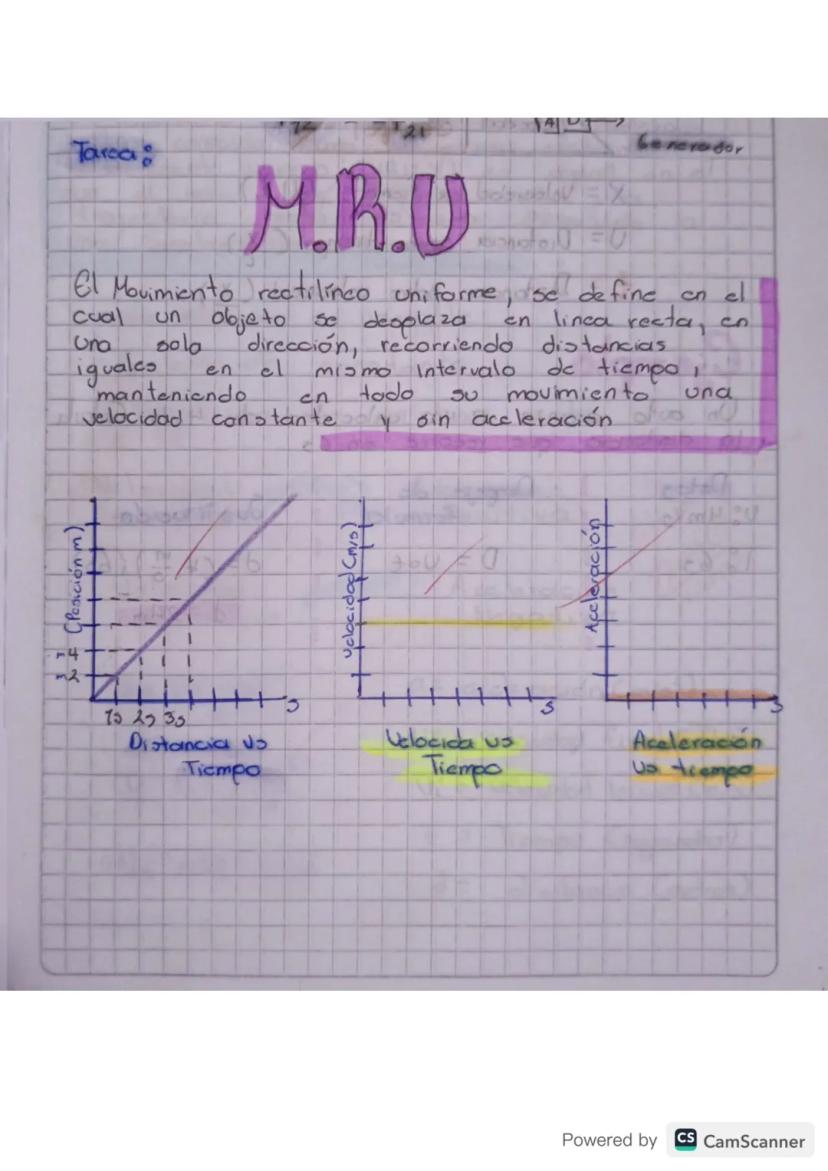 Tarea:
Generador
M.R.U
El Movimiento rectilíneo uniforme, se define en el
cual un objeto se desplaza en linea recta, en
una sola dirección, recorriendo distancias
iguales en el mismo Intervalo de tiempo,
manteniendo en todo su movimiento una
velocidad constante y sin aceleración
(Posición m)
m4
m2
1s 2s 3s
s
Distancia vs
Tiempo
Velocidad (m/s)
s
Velocida vs
Tiempo
Aceleración
s
Aceleración
vs tiempo
Powered by CS CamScanner